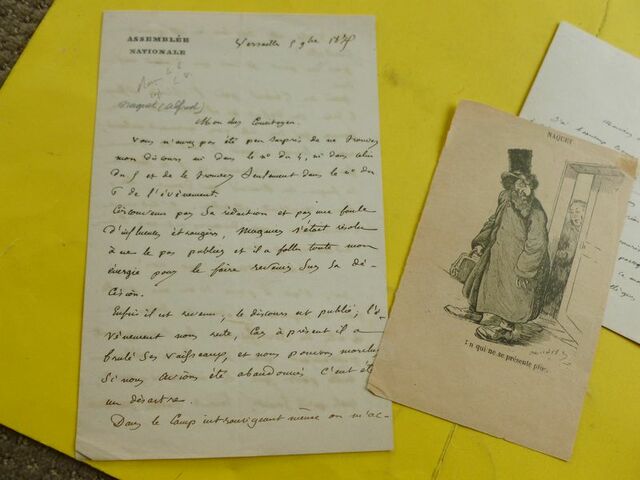 ASSEMBLÉE
NATIONALE
Versailles 5 9bre 1875
Naquet (Alfred)
Mon cher Concitoyen.
Vous n'aurez pas été peu surpris de ne trouver
mon discours ni dans le no du 4, ni dans celui
du 5 et de le trouver seulement dans le no du
6 de l'évènement.
Circonvenu par sa rédaction et par une foule
d'influences étrangères, Magnier s'était résolu
à ne le pas publier et il a fallu toute mon
énergie pour le faire revenir sur sa dé-
cision.
Enfin il est revenu, le discours est publié; l'é-
vènement nous reste, car à présent il a
brulé ses vaisseaux, et nous pouvons marcher
Si nous avions été abandonnés c'eut été
un désastre.
Dans le camp intransigeant même on m'ac-
NAQUET
Un qui ne se présente plus.